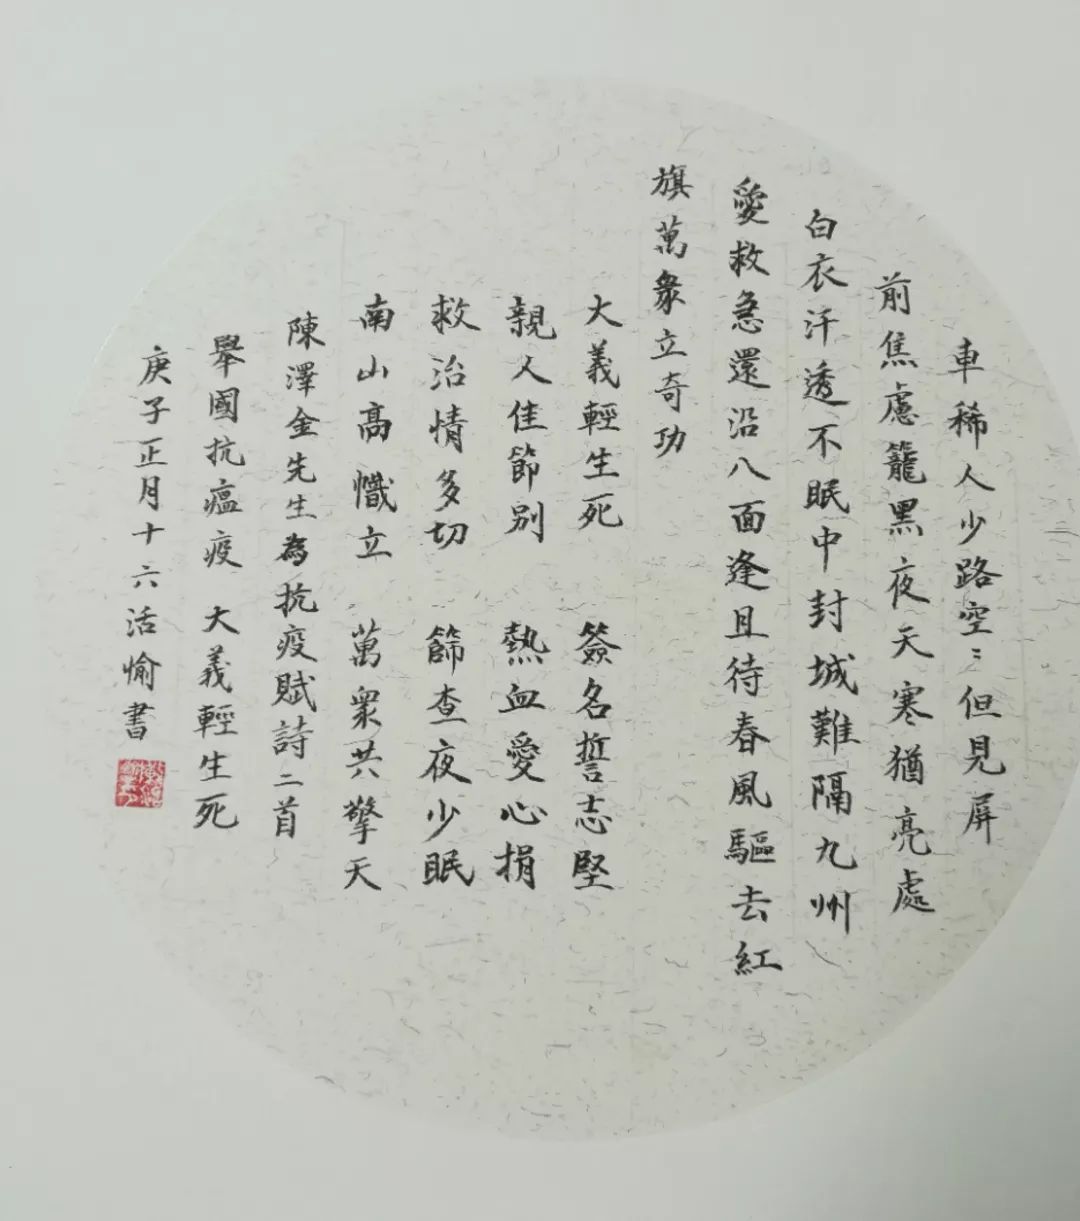 車稀人少路空〻但見屏
前焦慮籠黑夜天寒猶亮處
白衣汗透不眠中封城難隔九州
愛救急還沿八面逢且待春風驅去紅
旗萬衆立奇功
大義輕生死 簽名誓志堅
親人佳節别 熱血愛心捐
救治情多切 篩查夜少眠
南山高幟立 萬衆共擎天
陳澤金先生為抗疫賦詩二首
舉國抗瘟疫 大義輕生死
庚子正月十六活愉書